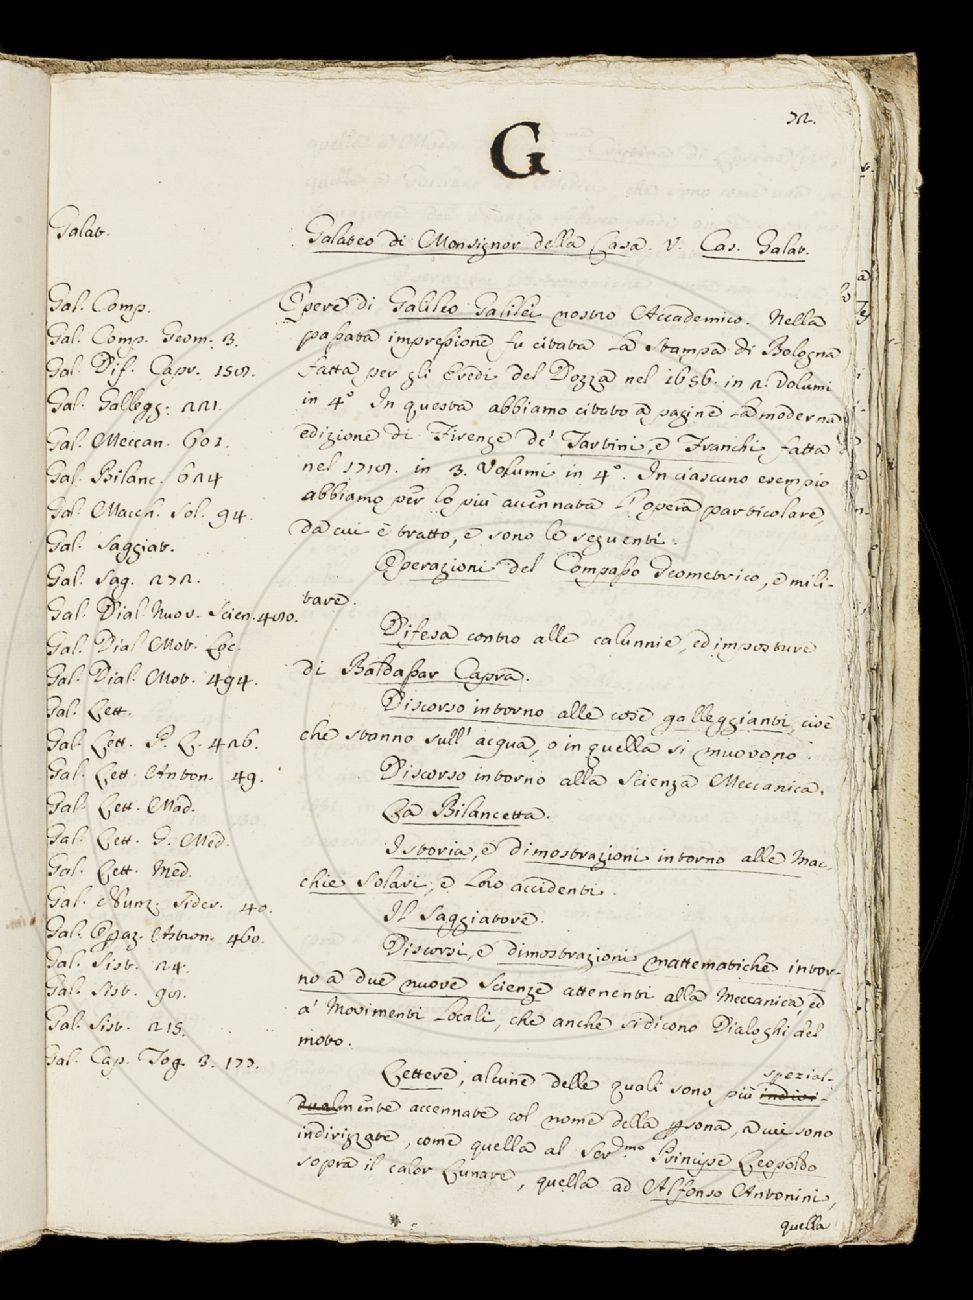 72.
G
Galat.
Galateo di Monsignor della Casa. V. Cas. Galat.
Gal. Comp.
Gal. Comp. Geom. 3.
Gal. Dif. Capr. 158.
Gal. Gallegg: 221.
Gal. Meccan. 601.
Gal. Bilanc. 624
Gal. Macch. Sol. 94.
Gal. Saggiat.
Gal. Sag. 272.
Gal. Dial. Nuov. Scien. 480.
Gal. Dial. Mot. Loc.
Gal. Dial. Mot. 494.
Gal. Lett.
Gal. Lett. P. L. 426.
Gal. Lett. Anton. 49.
Gal. Lett. Mad.
Gal. Lett. G. Med.
Gal. Lett. Med.
Gal. Nunz. Sider. 40.
Gal. Opaz. Astron. 460.
Gal. Sist. 24.
Gal. Sist. 98.
Gal. Sist. 215.
Gal. Cap. Tog. 3. 177.
Opere di Galileo Galilei nostro Accademico. Nella
passata impressione fu citata la Stampa di Bologna
fatta per gli Eredi del Dozza nel 1656. in 2. Volumi
in 4° In questa abbiamo citato a pagine la moderna
edizione di Firenze de' Tartini, e Franchi fatta
nel 1718. in 3. Volumi in 4°. In ciascuno esempio
abbiamo per lo più accennata l'opera particolare,
da cui è tratto, e sono le seguenti.
Operazioni del Compasso Geometrico, e mili-
tare.
Difesa contro alle calunnie, ed imposture
di Baldassar Capra.
Discorso intorno alle cose galleggianti, cioè
che stanno sull' acqua, o in quella si muovono.
Discorso intorno alla Scienza Meccanica.
La Bilancetta.
Istoria, e dimostrazioni intorno alle Mac-
chie Solari, e loro accidenti.
Il Saggiatore.
Discorsi, e dimostrazioni mattematiche intor-
no a due nuove Scienze attenenti alla Meccanica, ed
a' Movimenti Locali, che anche si dicono Dialoghi del
moto.
Lettere, alcune delle quali sono più indivi- spezial-
dualmente accennate col nome della psona, a cui sono
indirizzate, come quella al Ser.mo Principe Leopoldo
sopra il calor Lunare, quella ad Alfonso Antonini,
quella